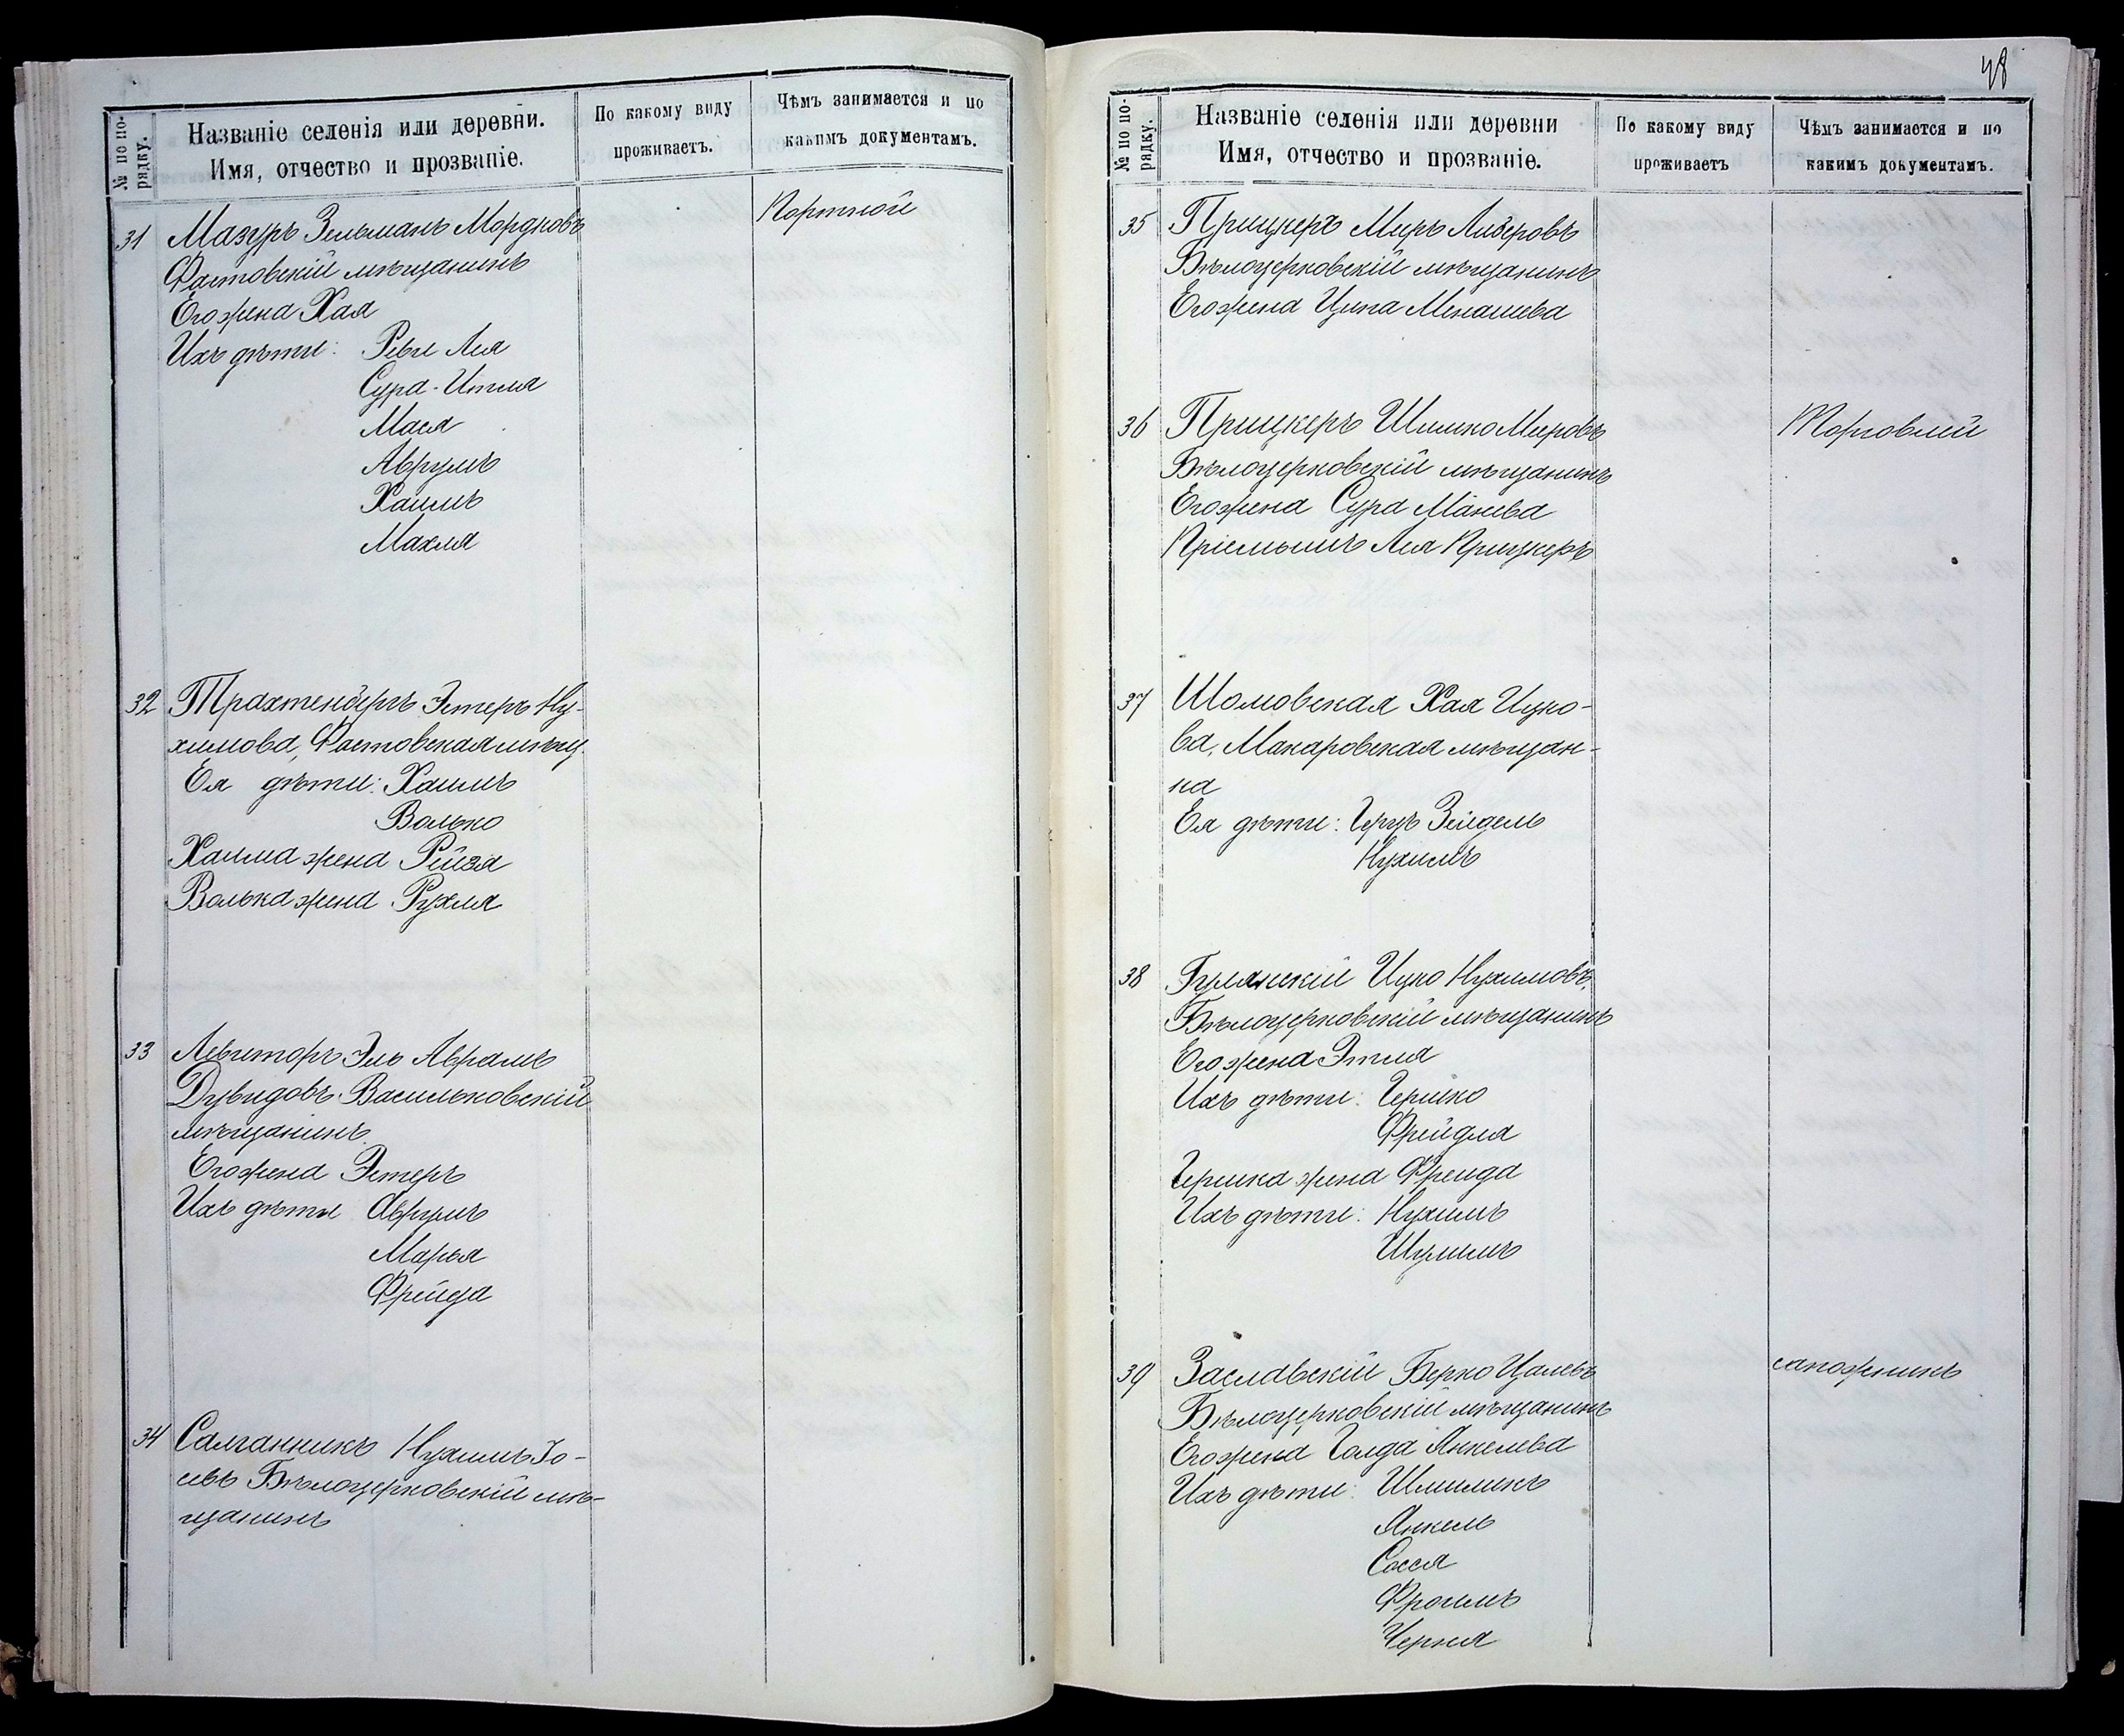 № по по-
рядку.
Названіе селенія или деревни.
Имя, отчество и прозваніе.
По какому виду
проживаетъ.
Чѣмъ занимается и по
какимъ документамъ.
31 Мазуръ Зельманъ Мордковъ Портной
Фастовскій мѣщанинъ
Его жена Хая
Ихъ дѣти: Реви Лея
Сура-Итля
Мася
Аврумъ
Хаимъ
Махля
32 Трахтенберъ Эстеръ Ну-
химова, Фастовская мѣщ.
Ея дѣти: Хаимъ
Волько
Хаима жена Рейза
Волька жена Рухля
33 Левиторъ Эль Аврамъ
Дувидовъ Васильковскій
мѣщанинъ
Его жена Эстеръ
Ихъ дѣти Аврумъ
Марья
Фрейда
34 Салганникъ Нухимъ Іо-
севъ Бѣлоцерковскій мѣ-
щанинъ
48
№ по по-
рядку.
Названіе селенія или деревни
Имя, отчество и прозваніе.
По какому виду
проживаетъ
Чѣмъ занимается и по
какимъ документамъ.
35 Прицкеръ Меръ Лейзеровъ
Бѣлоцерковскій мѣщанинъ
Его жена Ципа Менашева
36 Прицкеръ Шимко Меровъ Торговлей
Бѣлоцерковскій мѣщанинъ
Его жена Сура Манева
Пріемышъ Лея Прицкеръ
37 Шомовская Хая Ицко-
ва, Макаровская мѣщан-
ка
Ея дѣти: Герцъ Зейдель
Нухимъ
38 Гулянскій Ицко Нухимовъ,
Бѣлоцерковскій мѣщанинъ
Его жена Этля
Ихъ дѣти: Гершко
Фрейдля
Гершка жена Фрейда
Ихъ дѣти: Нухимъ
Шулимъ
39 Заславскій Берко Цалевъ сапожникъ
Бѣлоцерковскій мѣщанинъ
Его жена Голда Янкелева
Ихъ дѣти: Шмиликъ
Янкель
Сося
Фроимъ
Черня